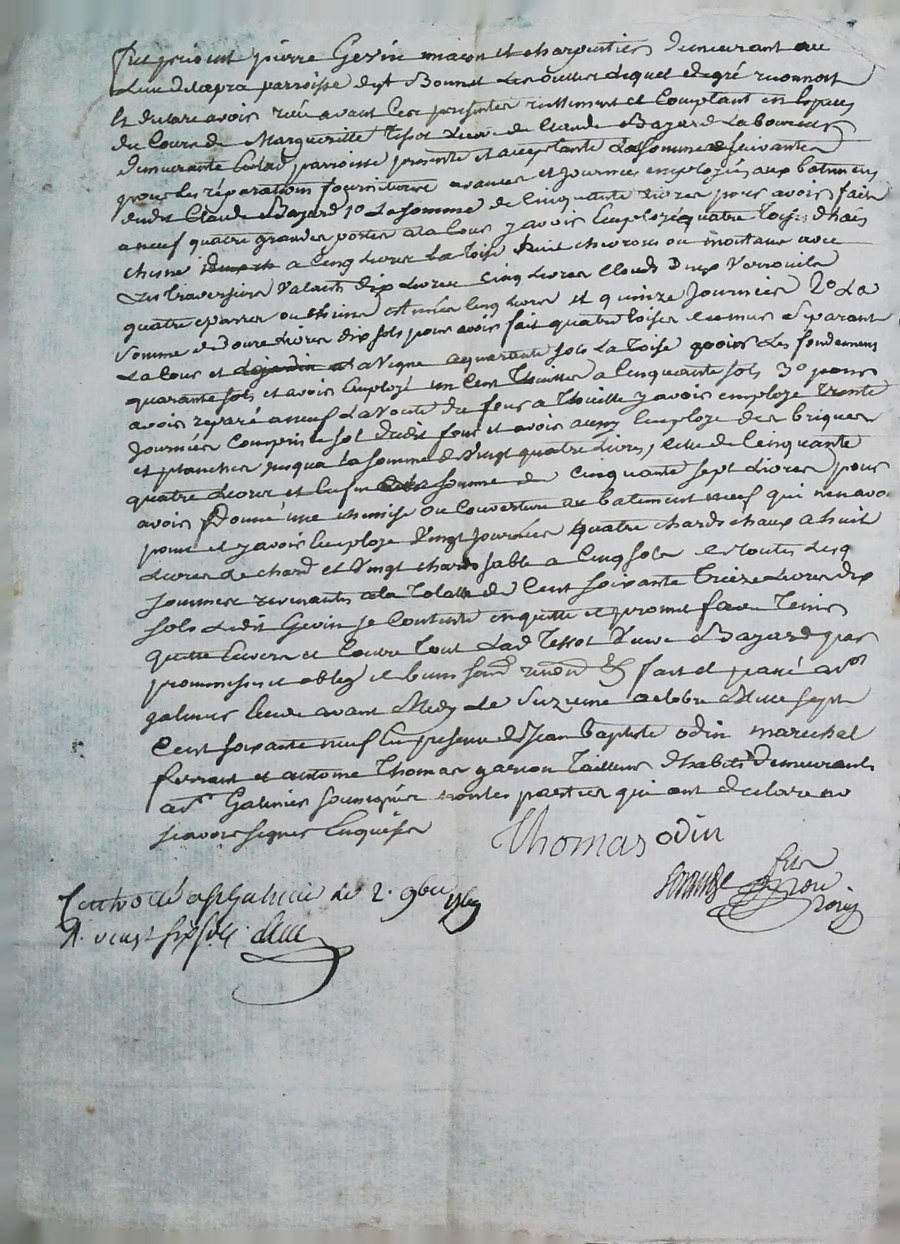 fut présent pierre Gerin maçon et charpentier demeurant au
Lieu de lapra parroisse de st Bonnet Les oulles Lequel de gré reconnoit
Et declare avoir reçu avant Ces presentes reellement et Comptant en Especes
du Cours de Margueritte Tissot veuve de Claude Bazard Laboureur
demeurante En lad parroisse presente et acceptante La somme suivantes
pour Les réparations fourniture avances et journées employées aux batimens
dudit Claude Bazard 1o La somme de Cinquante Livres pour avoir fait
a neuf quatre grandes portes a la Cour y avoir Employé quatre Toises d'hais
chesne a Cinq Livres La Toise huit chevrons ou montans avec
Les traversiers valants dix Livres Cinq Livres Clouds deux verrouils
quatre eparres Cinq Livres et quinze journées 2o La
somme de douze Livres dix sols pour avoir fait quatre toises de mur Separant
La Cour et La vigne a quarante sols La Toise Les fondemens
quarante sols et avoir Employé un Cent Thuilles a Cinquante sols 3o pour
avoir reparé a neuf La voute du four a Thuille y avoir employé Trente
journées Compris le sol dudit four et avoir aussy Employé des briques
et plancher jusqua La somme de vingt quatre Livres, Celle de Cinquante
quatre Livres et Enfin La somme de Cinquante sept Livres pour
avoir donné une chemise ou Couverture au batiment neuf qui nen avoit
point et y avoir Employé vingt journées quatre chards chaux a huit
Livres Le chard et vingt chards sable a Cinq sols de toutes Lesq
sommes revenantes a la Totalle de Cent soixante Treize Livres dix
sols Ledit Gerin se Contente en quitte et promet faire Tenir
quitte Envers et Contre Tout Lad Tissot veuve Bazard par
promission et oblig de biens soud renon &c fait et passé a st
galmier Etude avant Midy Le onzieme octobre Mille sept
Cent soixante neuf En presence de Jean baptiste odin marechal
ferrant et antoine Thomas garçon Tailleur d'habits demeurants
a st Galmier soussignés non les parties qui ont declaré ne
sçavoir signer Enquises
Thomas odin
Controllé a St Galmier Le 2. 9bre 1769
R. vingt six sols